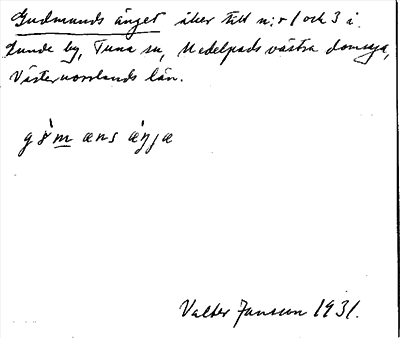 Gudmunds änget åker till n:r 1 och 3 i
Lunde by, Tuna sn, Medelpads västra domsaga,
Västernorrlands län.
Valter Jansson 1931.